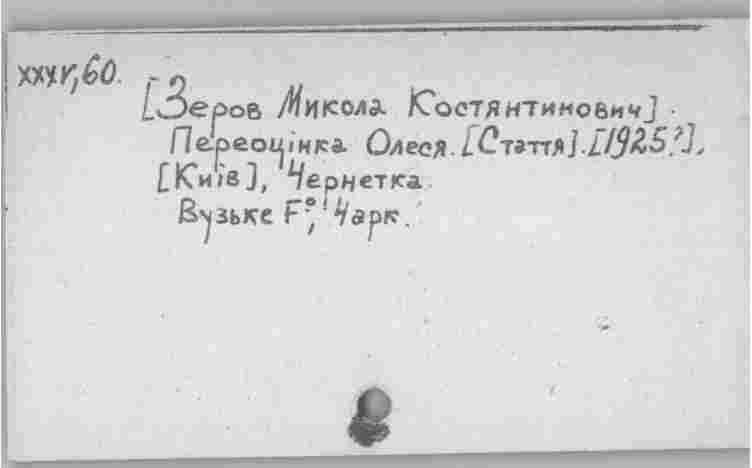 XXXV,60.
[Зеров Микола Костянтинович].
Переоцінка Олеся. [Стаття]. [1925?].
[Київ], Чернетка.
Вузьке F°, 4 арк.